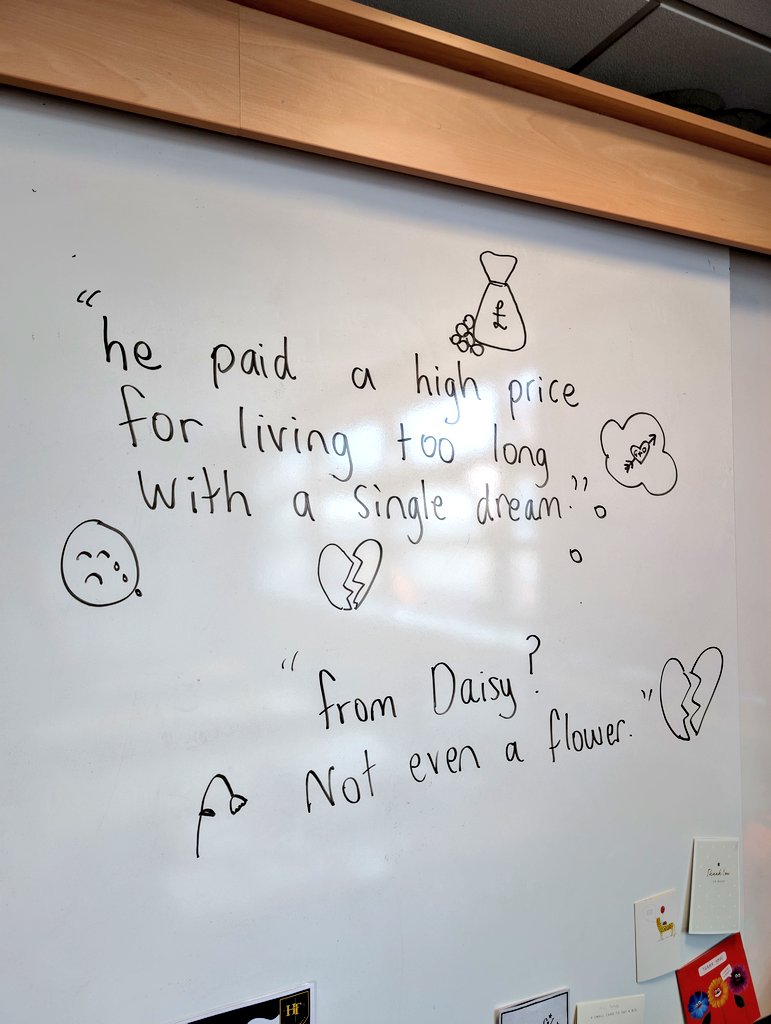 £
“he paid a high price
for living too long
with a single dream.”
“from Daisy?
Not even a flower.”